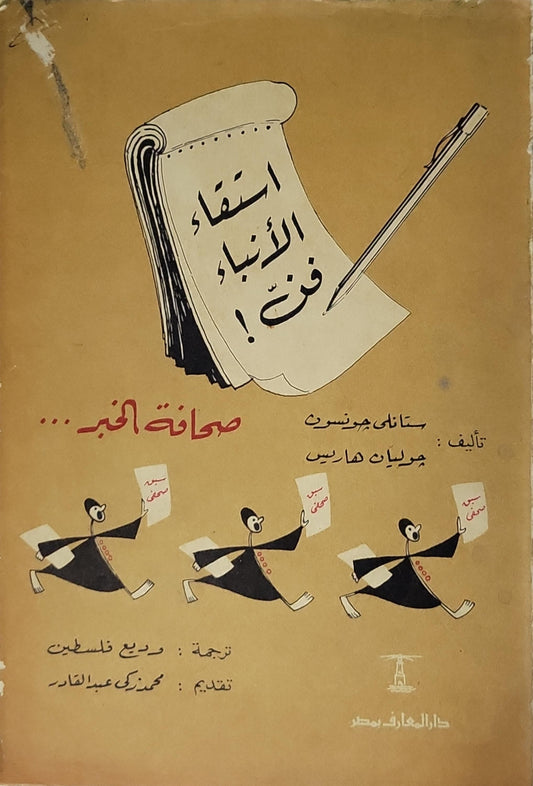 استقاء
الأنباء
فنّ !
صحافة الخبر ...
تأليف : ستانلى چونسون
چوليان هاريس
سبق
صحفى
سبق
صحفى
سبق
صحفى
ترجمة : وديع فلسطين
تقديم : محمد زكى عبد القادر
دار المعارف بمصر